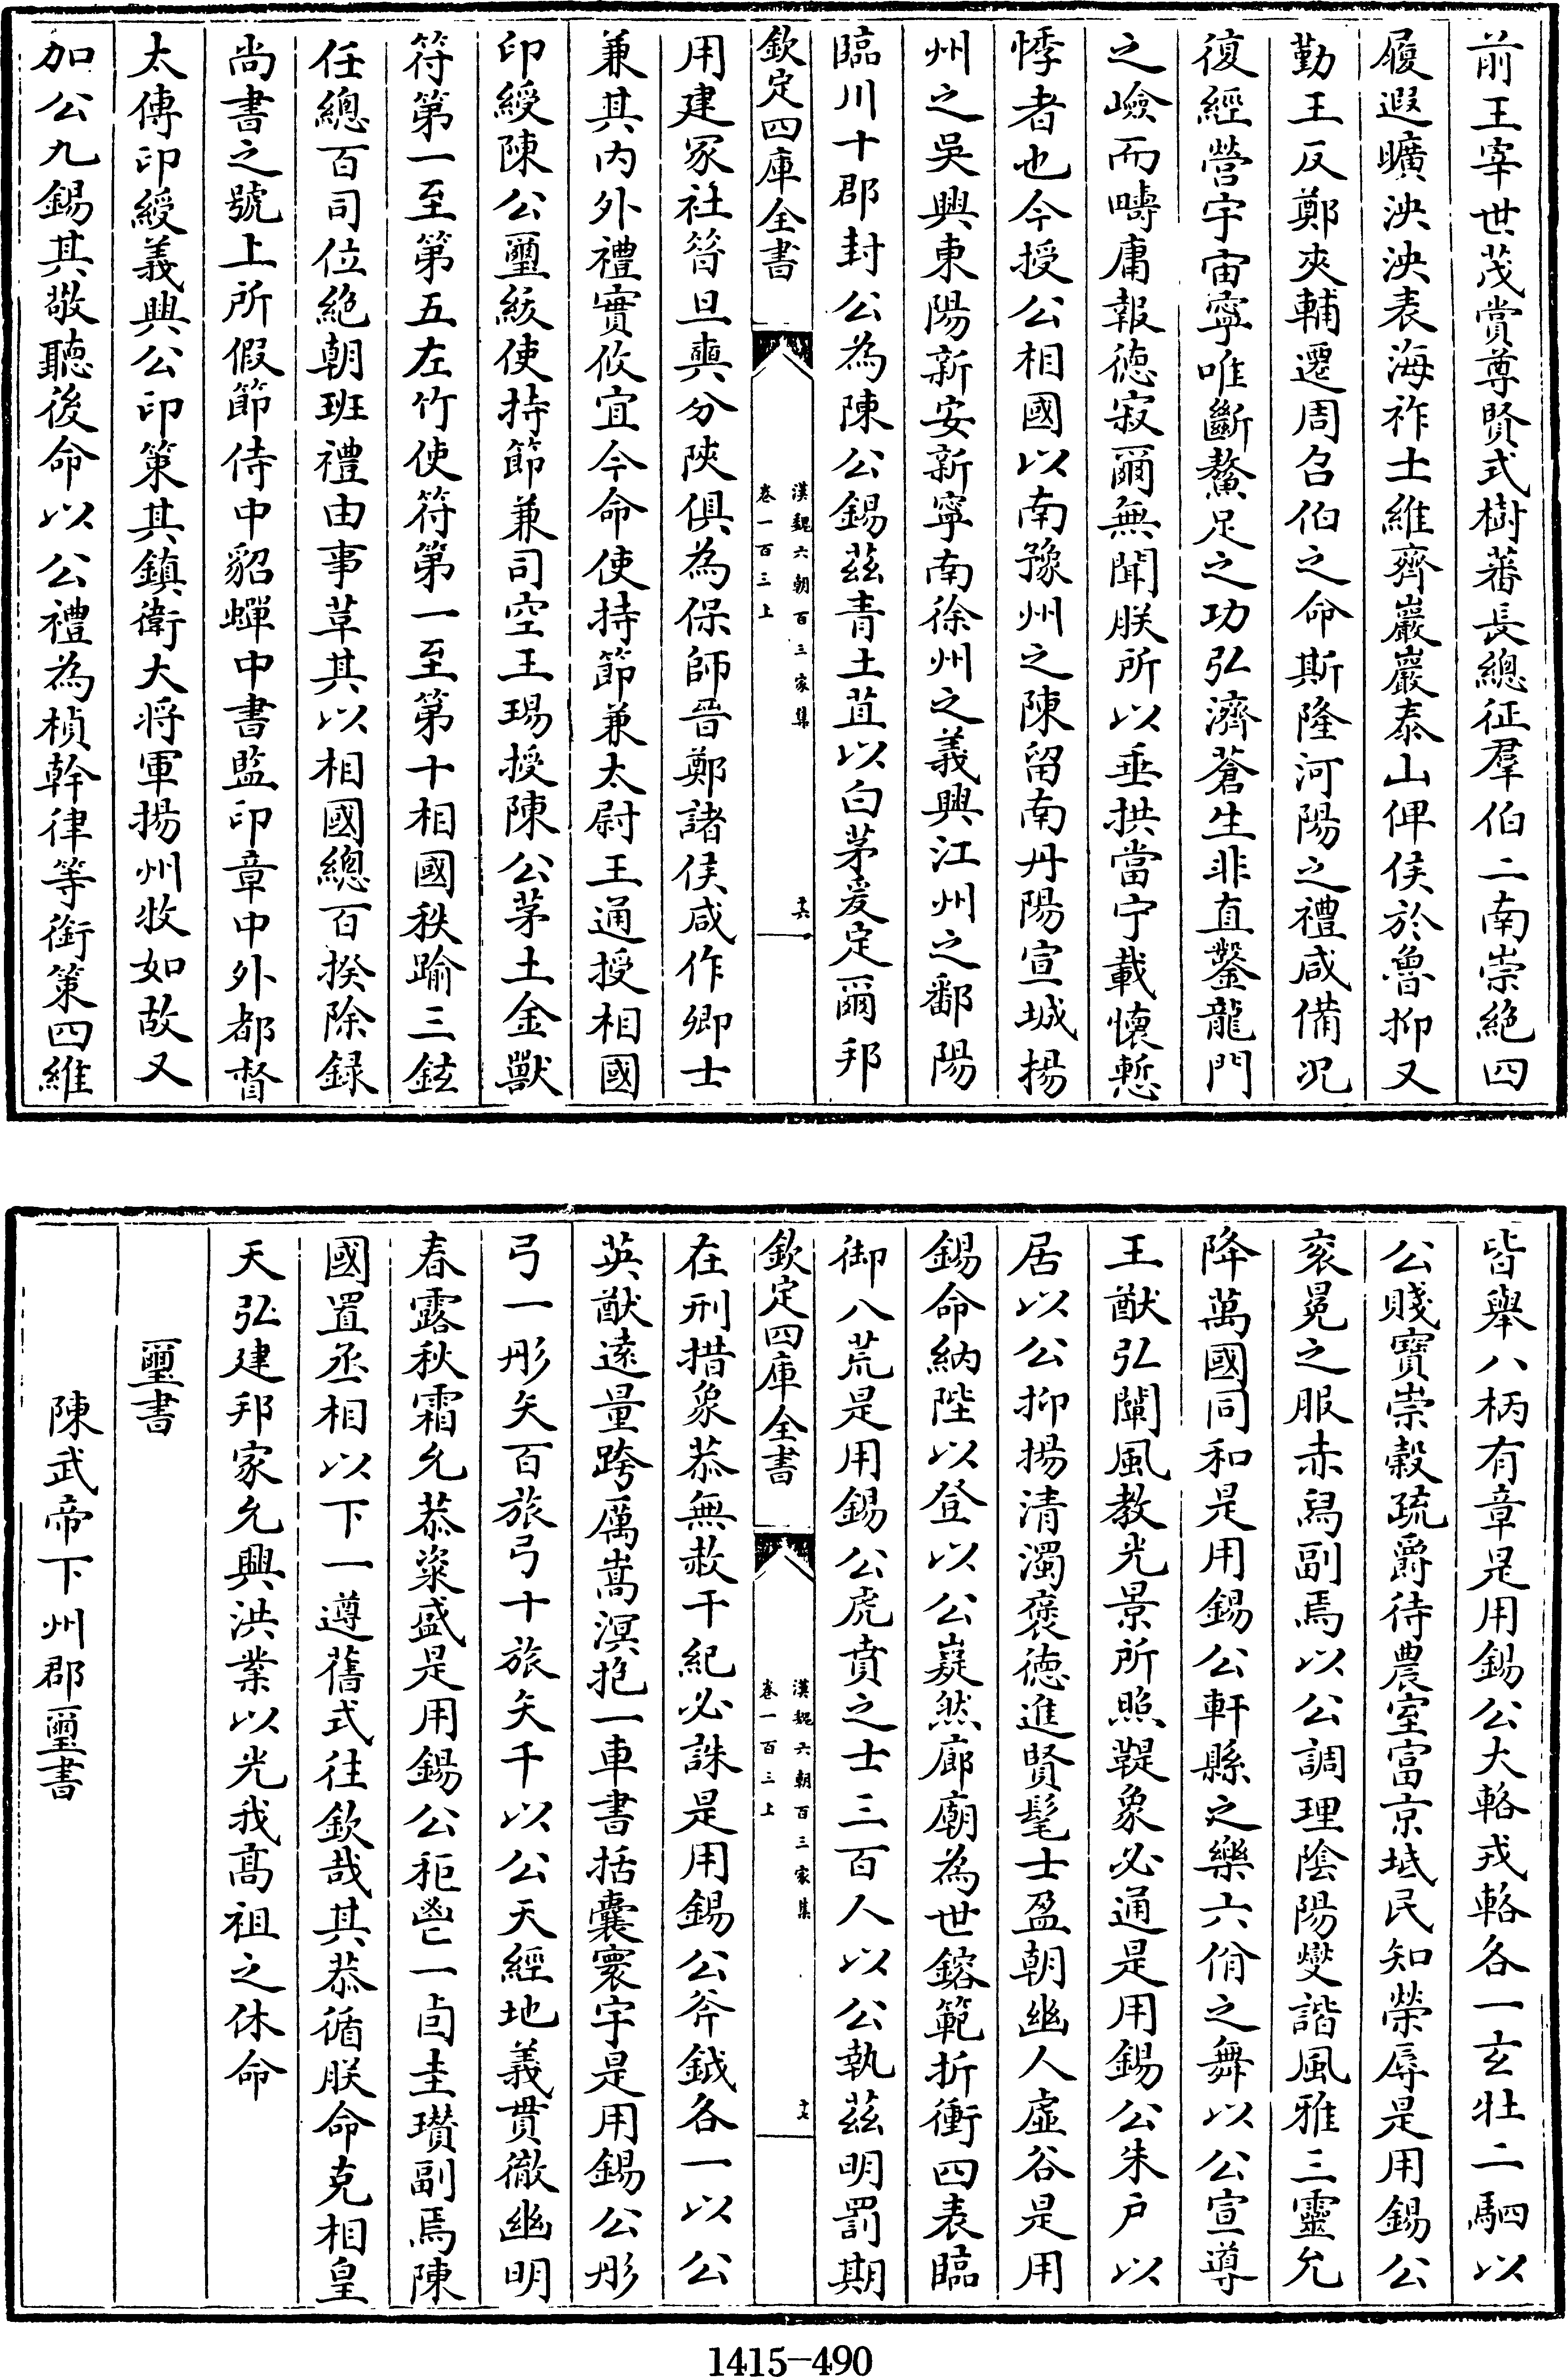 前王宰世茂賞尊賢式樹蕃長總征羣伯二南崇絶四
履遐曠泱泱表海祚土維齊巖巖泰山俾侯於魯抑又
勤王反鄭夾輔遷周召伯之命斯隆河陽之禮咸備況
復經營宇宙寧唯斷鰲足之功弘濟蒼生非直鑿龍門
之嶮而疇庸報徳寂爾無聞朕所以垂拱當宁載懐慙
悸者也今授公相國以南豫州之陳留南丹陽宣城揚
州之吳興東陽新安新寧南徐州之義興江州之鄱陽
臨川十郡封公為陳公錫茲青土苴以白茅爰定爾邦
欽定四庫全書
漢魏六朝百三家集
卷一百三上
十六
用建冢社昔旦奭分陜俱為保師晉鄭諸侯咸作卿士
兼其内外禮實攸宜今命使持節兼太尉王通授相國
印綬陳公璽紱使持節兼司空王瑒授陳公茅土金獸
符第一至第五左竹使符第一至第十相國秩踰三鉉
任總百司位絶朝班禮由事草其以相國總百揆除録
尚書之號上所假節侍中貂蟬中書監印章中外都督
太傅印綬義興公印策其鎮衛大将軍揚州牧如故又
加公九錫其敬聽後命以公禮為楨幹律等銜策四維
皆舉八柄有章是用錫公大輅戎輅各一玄牡二駟以
公賤寳崇穀疏爵待農室富京坻民知榮辱是用錫公
衮冕之服赤舄副焉以公調理隂陽燮諧風雅三靈允
降萬國同和是用錫公軒縣之樂六佾之舞以公宣導
王猷弘闡風教光景所照鞮象必通是用錫公朱户以
居以公抑揚清濁褒徳進賢髦士盈朝幽人虚谷是用
錫命納陛以登以公嶷然廊廟為世鎔範折衝四表臨
御八荒是用錫公虎賁之士三百人以公執茲明罰期
欽定四庫全書
漢魏六朝百三家集
卷一百三上
十七
在刑措象恭無赦干紀必誅是用錫公斧鉞各一以公
英猷逺量跨厲嵩溟抱一車書括囊寰宇是用錫公彤
弓一彤矢百旅弓十旅矢千以公天經地義貫徹幽明
春露秋霜允恭粢盛是用錫公秬鬯一卣圭瓚副焉陳
國置丞相以下一遵舊式往欽哉其恭循朕命克相皇
天弘建邦家允興洪業以光我髙祖之休命
璽書
陳武帝下州郡璽書
1415-490